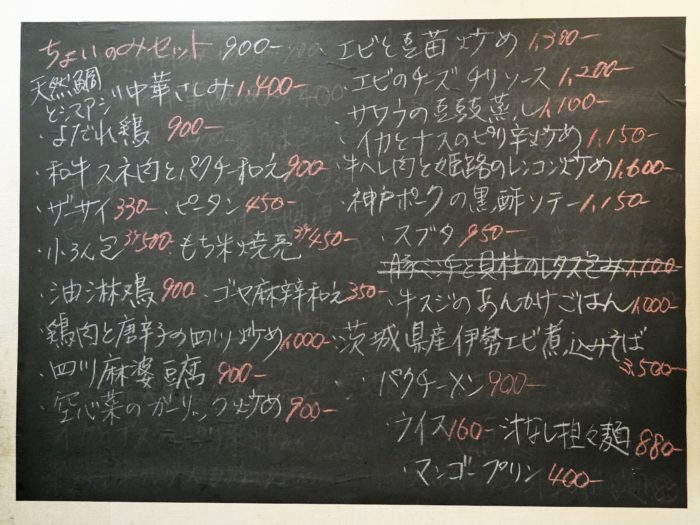 ちょいのみセット 900-
天然鯛
とシマアジ 中華さしみ 1,400-
・よだれ鶏 900-
・和牛スネ肉とパクチー和え 900
・ザーサイ 330- ・ピータン 450-
・小ろん包 3ケ500 ・もち米焼売 3ケ450-
・油淋鶏 900 ・ゴヤ麻辣和え 350-
・鶏肉と唐辛子の四川炒め 1,000-
・四川麻婆豆腐 900-
・空心菜のガーリック炒め 900-
・エビと豆苗炒め 1,300-
・エビのチーズチリソース 1,200-
・サワラの豆豉蒸し 1,100-
・イカとナスのピリ辛炒め 1,150-
・牛ヘレ肉と姫路のレンコン炒め 1,600-
・神戸ポークの黒酢ソテー 1,150-
・スブタ 950-
・豚ミンチと貝柱のレタス包み 1,100
・牛スジのあんかけごはん 1,000-
・茨城県産伊勢エビ煮込みそば
3,500-
・パクチーメン 900-
・ライス 160- ・汁なし担々麺 880-
・マンゴープリン 400-